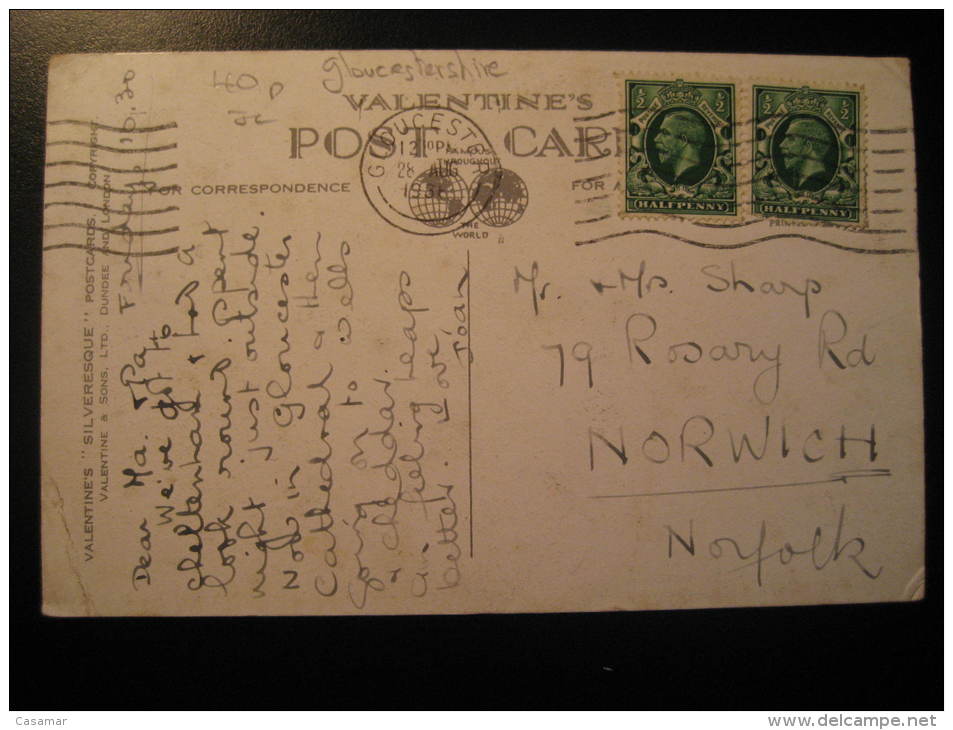 Gloucestershire
40p
VALENTINE'S
POST CARD
FAMOUS
THROUGHOUT
THE
WORLD
FOR CORRESPONDENCE
FOR A
GLOUCESTER
28 AUG
½ ½
HALFPENNY
½ ½
HALFPENNY
PRIN
VALENTINE'S "SILVERESQUE" POSTCARDS. COPYRIGHT.
VALENTINE & SONS, LTD., DUNDEE AND LONDON
10.30
Dear Ma & Pa
We've got to
Cheltenham & had a
look round. Spent
night just outside.
Now in Gloucester
Cathedral & then
going on to Wells
& Cheddar.
am feeling heaps
better. Love
Joan
Mr. & Mrs. Sharp
79 Rosary Rd
NORWICH
Norfolk
Casamar
www.delcampe.net